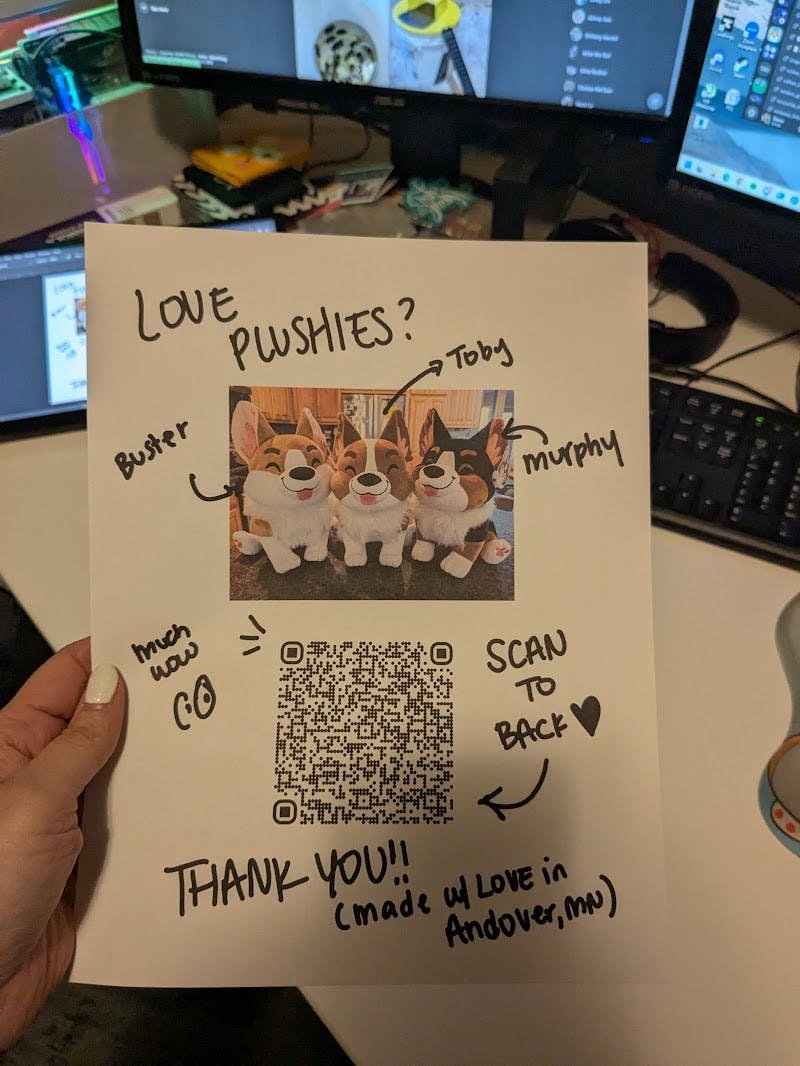 LOVE
PLUSHIES?
Toby
Buster
murphy
much
wow
SCAN
TO
BACK
THANK YOU!!
(made w/ LOVE in
Andover, MN)